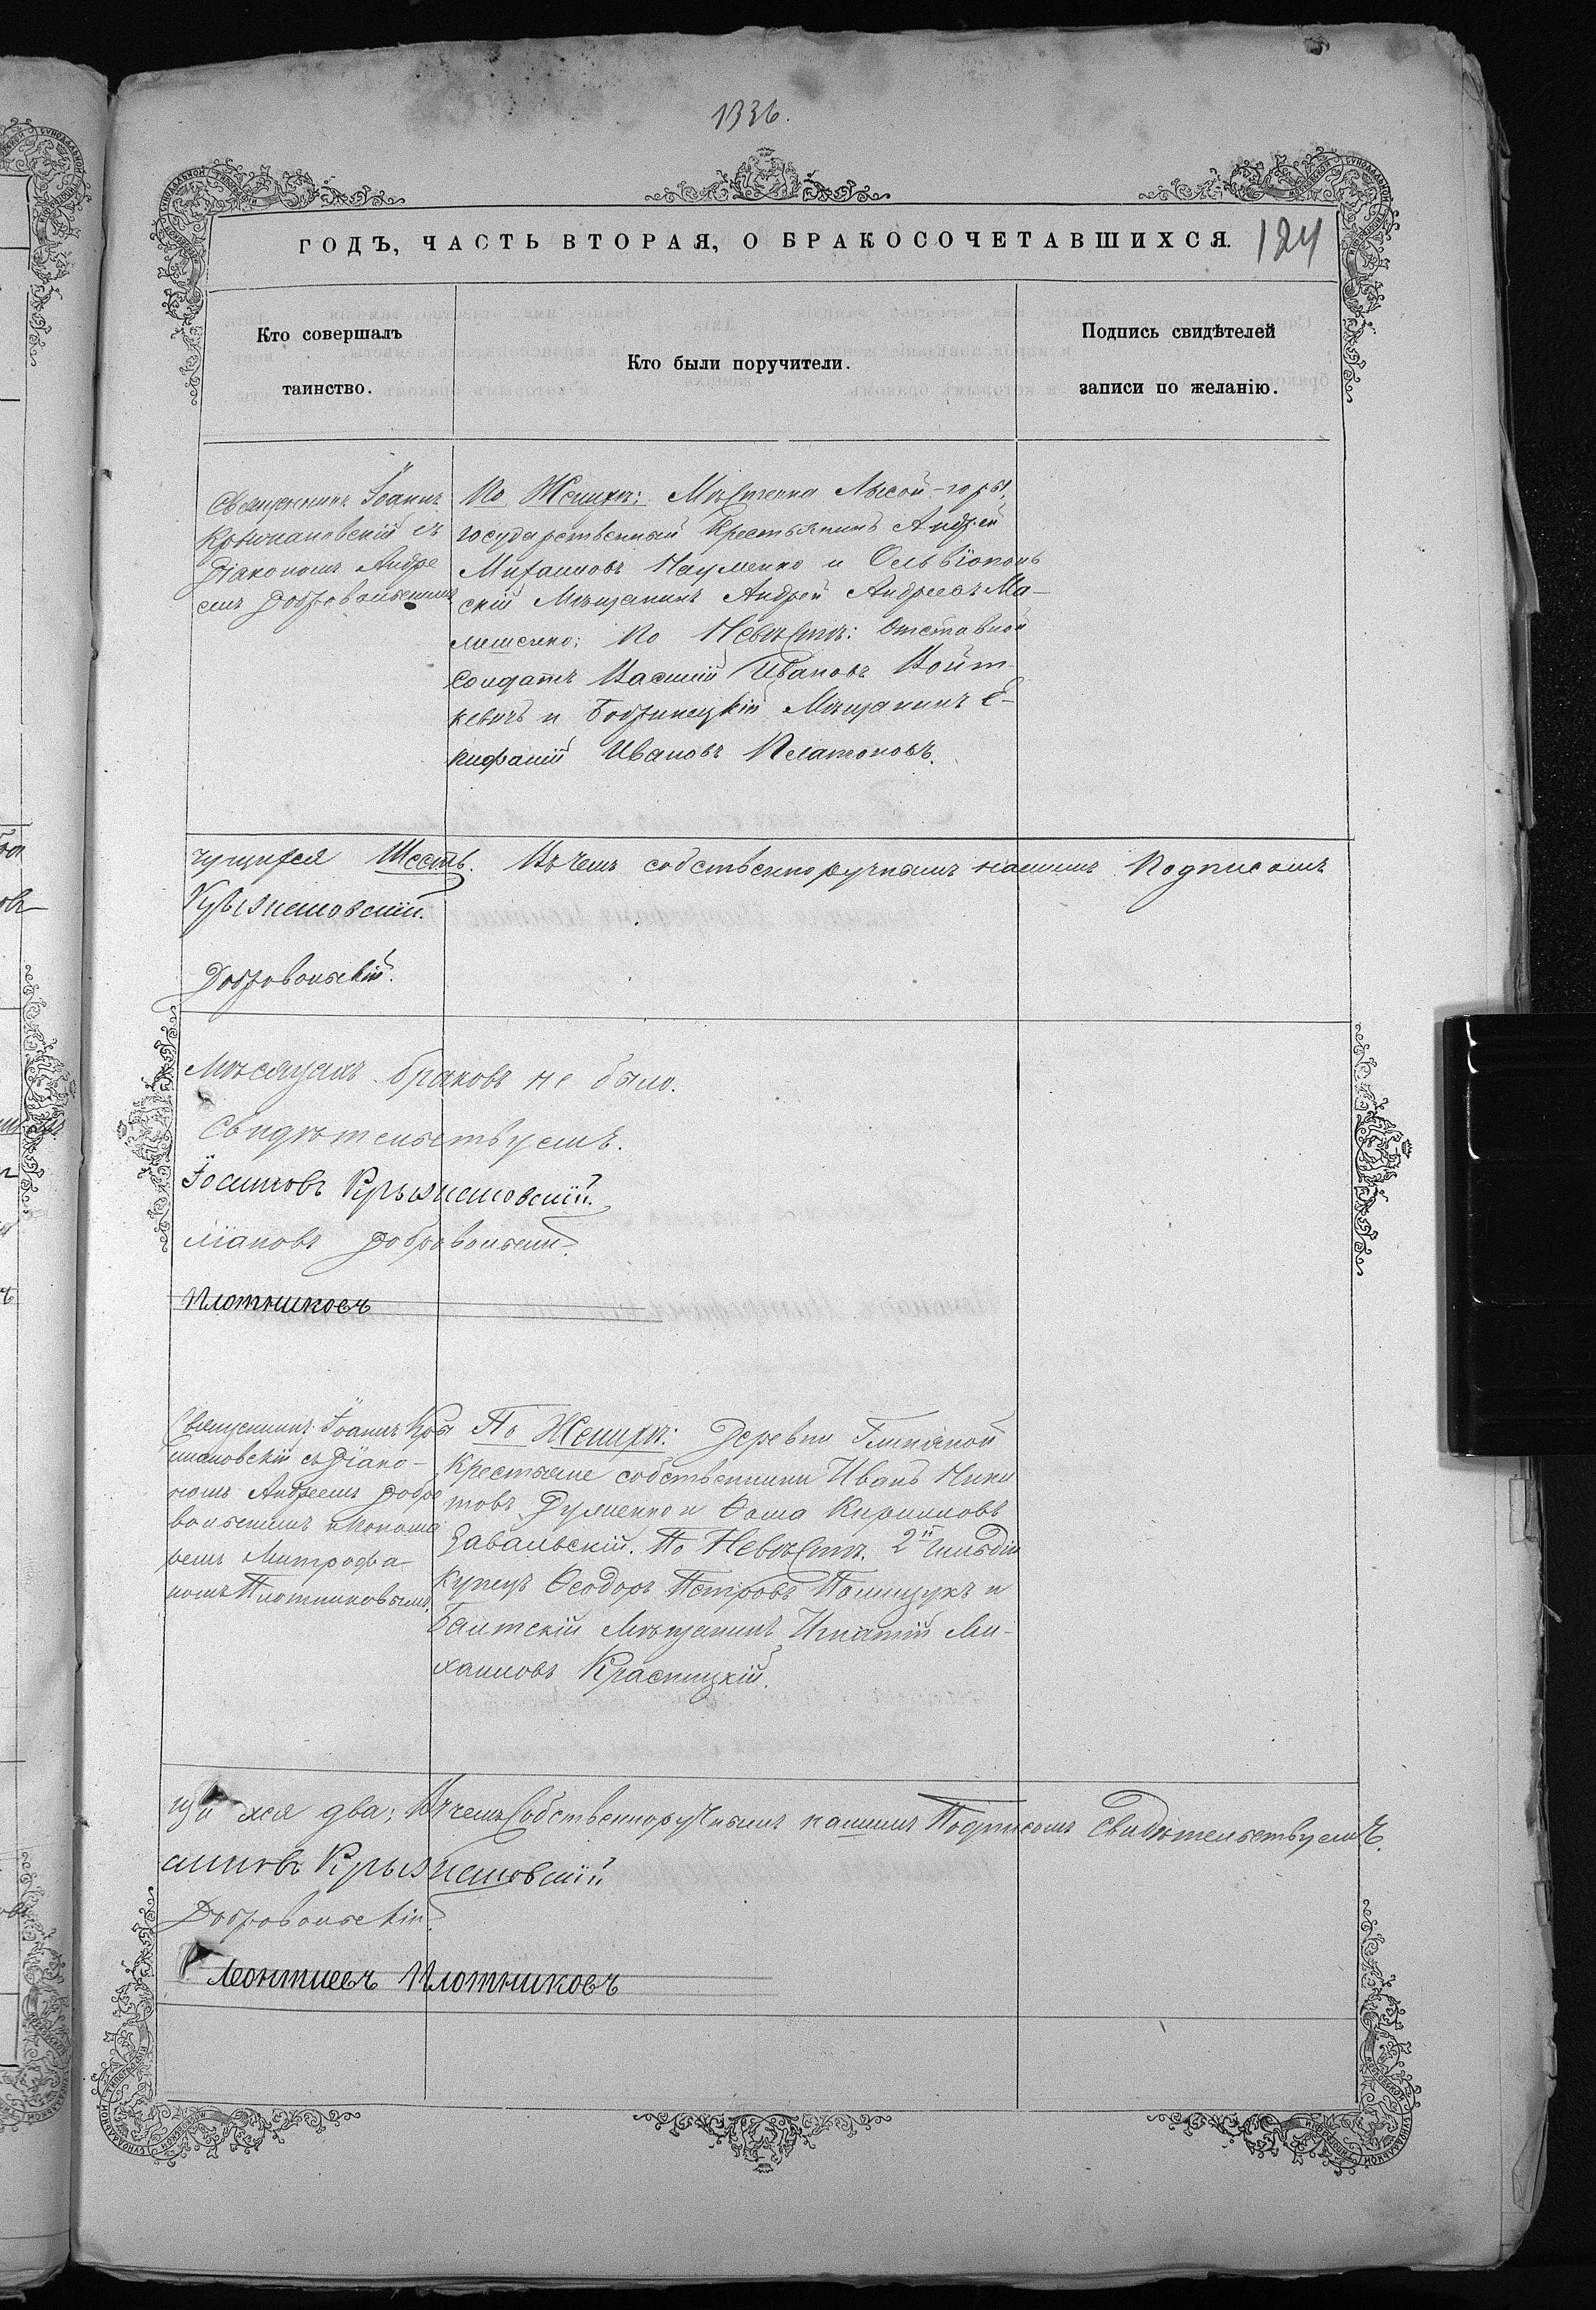 1336.
ГОДЪ, ЧАСТЬ ВТОРАЯ, О БРАКОСОЧЕТАВШИХСЯ.
124
Кто совершалъ
таинство.
Кто были поручители.
Подпись свидѣтелей
записи по желанію.
Священникъ Іоаннъ
Крыжановскій съ
Діакономъ Андре
емъ Добровольскимъ
По Женихѣ: Мѣстечка Лысой-горы,
государственный Крестьянинъ Андрей
Михайловъ Науменко и Ольвіополь
скій Мѣщанинъ Андрей Андреевъ Ма-
лишенко; По Невѣстѣ: Отставной
Солдатъ Василій Ивановъ Войт-
кевичъ и Бобринецкій Мѣщанинъ Е-
пифаній Ивановъ Платоновъ.
чущихся Шесть. Въ чемъ собственноручнымъ нашимъ Подписомъ
Крыжановскій.
Добровольскій.
Мѣсяцахъ браковъ не было.
Свидѣтельствуемъ.
Іосифовъ Крыжановскій.
Добровольскій.
Плотниковъ
Священникъ Іоаннъ Кры
жановскій съ Діако-
номъ Андреемъ Добро
вольскимъ и Понома
ремъ Митрофа
номъ Плотниковымъ.
По Женихѣ: Деревни Глиняной
Крестьяне собственники Иванъ Ники
товъ Руменко и Ѳома Кириловъ
Завальскій. По Невѣстѣ. 2й Гильдіи
Купецъ Ѳеодоръ Петровъ Полищукъ и
Балтскій Мѣщанинъ Игнатій Ми-
хаиловъ Красницкій.
щихся два; Въ чемъ Собственноручнымъ нашимъ Подписомъ Свидѣтельствуемъ.
Крыжановскій
Добровольскій.
Леонтиевъ Плотниковъ